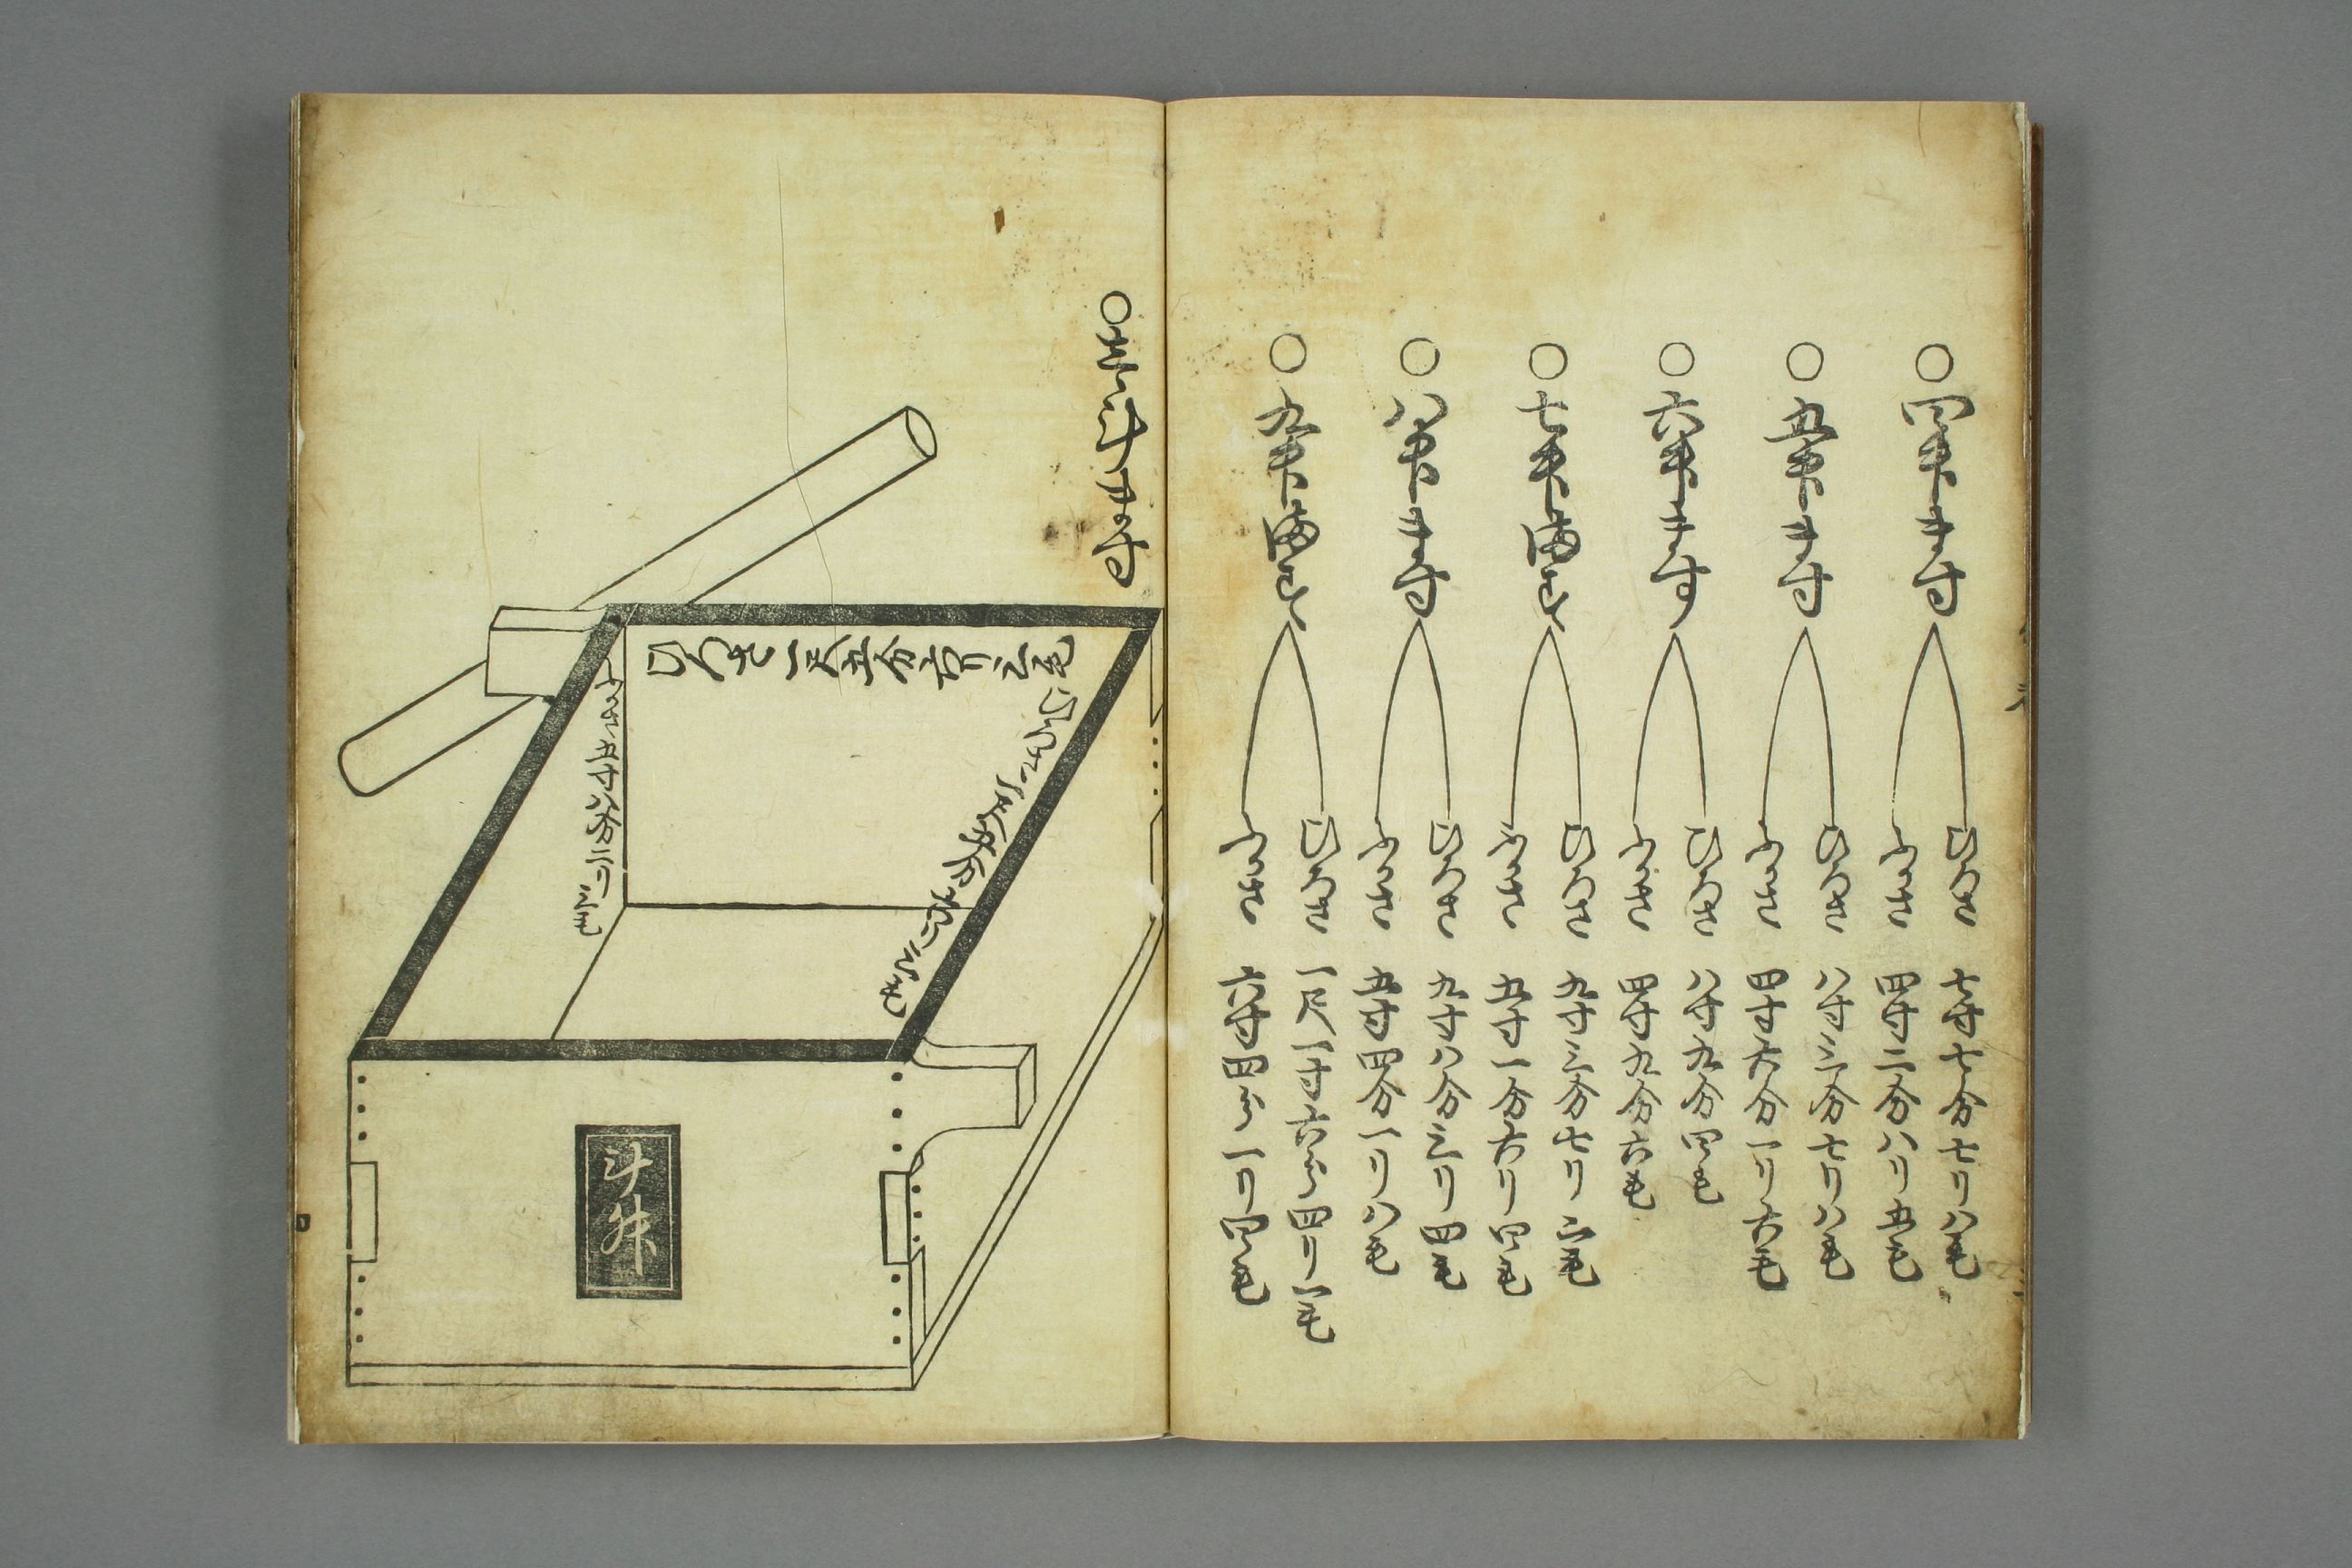 ○四升ます
ひろさ 七寸七分七リ八毛
ふかさ 四寸二分八リ五毛
○五升ます
ひろさ 八寸三分七リ八毛
ふかさ 四寸六分一リ六毛
○六升ます
ひろさ 八寸九分四毛
ふかさ 四寸九分六毛
○七升ます
ひろさ 九寸三分七リ三毛
ふかさ 五寸一分六リ四毛
○八升ます
ひろさ 九寸八分三リ四毛
ふかさ 五寸四分一リ八毛
○九升ます
ひろさ 一尺一寸六分四リ一毛
ふかさ 六寸四分一リ四毛
○壱斗ます
ひろさ一尺五分六リ三毛
ひろさ一尺五分六リ三毛
ふかさ五寸八分二リ
斗舛